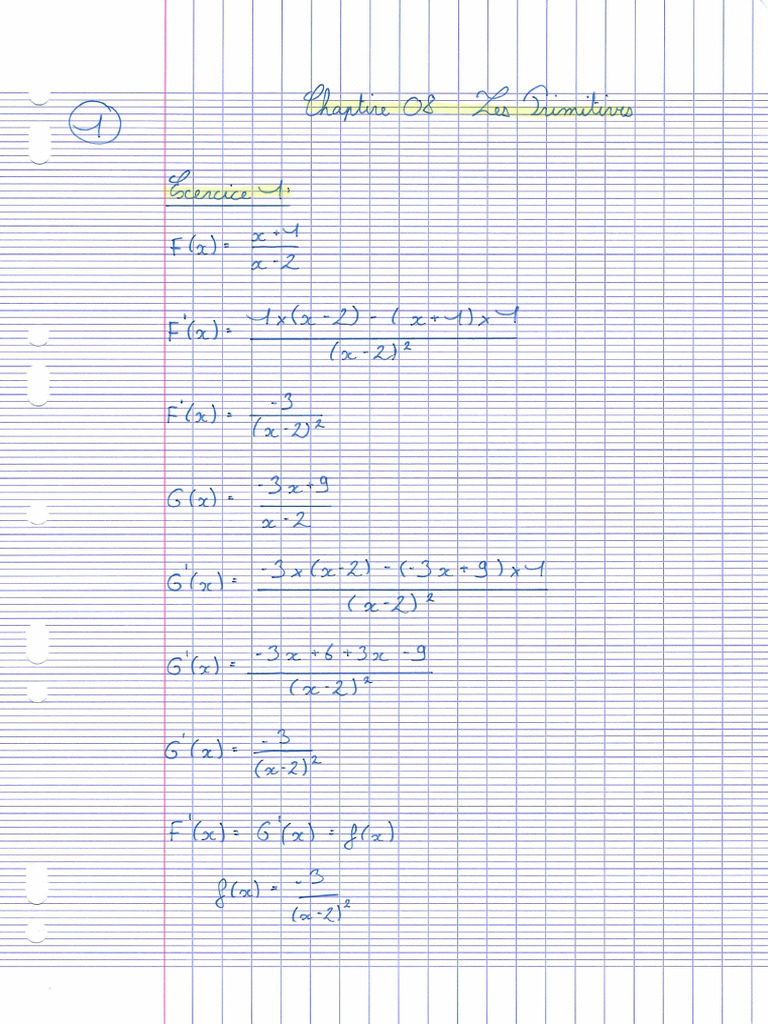 Chapitre 08 Les Primitives
1
Exercice 1:
F(x) = (x+1)/(x-2)
F'(x) = (1×(x-2) - (x+1)×1)/(x-2)²
F'(x) = -3/(x-2)²
G(x) = (-3x+9)/(x-2)
G'(x) = (-3×(x-2) - (-3x+9)×1)/(x-2)²
G'(x) = (-3x+6+3x-9)/(x-2)²
G'(x) = -3/(x-2)²
F'(x) = G'(x) = f(x)
f(x) = -3/(x-2)²